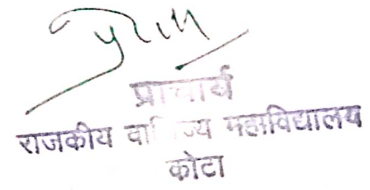 प्राचार्य
राजकीय वाणिज्य महाविद्यालय
कोटा